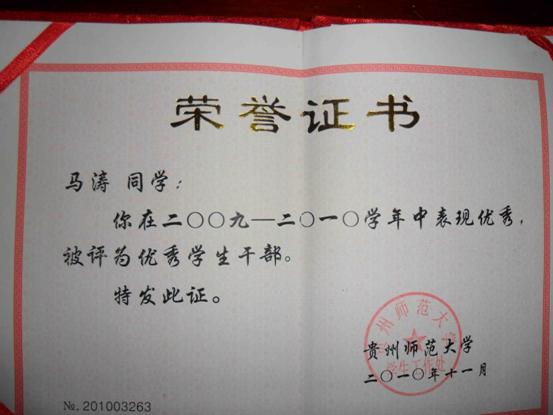 荣誉证书
马涛 同学：
你在二〇〇九—二〇一〇学年中表现优秀，
被评为优秀学生干部。
特发此证。
贵州师范大学
学生工作处
贵州师范大学
二〇一〇年十一月
№.201003263